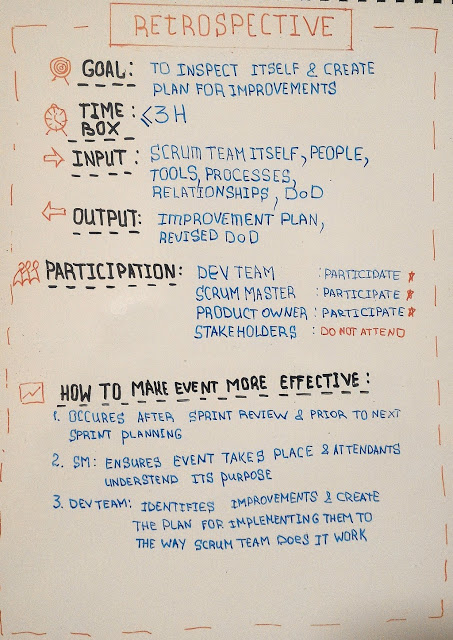 RETROSPECTIVE
GOAL: TO INSPECT ITSELF & CREATE
PLAN FOR IMPROVEMENTS
TIME BOX: ≤3H
INPUT: SCRUM TEAM ITSELF, PEOPLE,
TOOLS, PROCESSES,
RELATIONSHIPS, DoD
OUTPUT: IMPROVEMENT PLAN,
REVISED DoD
PARTICIPATION: DEV TEAM : PARTICIDATE
SCRUM MASTER : PARTICIPATE
PRODUCT OWNER : PARTICIPATE
STAKEHOLDERS : DO NOT ATTEND
HOW TO MAKE EVENT MORE EFFECTIVE:
1. OCCURES AFTER SPRINT REVIEW & PRIOR TO NEXT
SPRINT PLANNING
2. SM: ENSURES EVENT TAKES PLACE & ATTENDANTS
UNDERSTEND ITS PURPOSE
3. DEV TEAM: IDENTIFIES IMPROVEMENTS & CREATE
THE PLAN FOR IMPLEMENTING THEM TO
THE WAY SCRUM TEAM DOES IT WORK